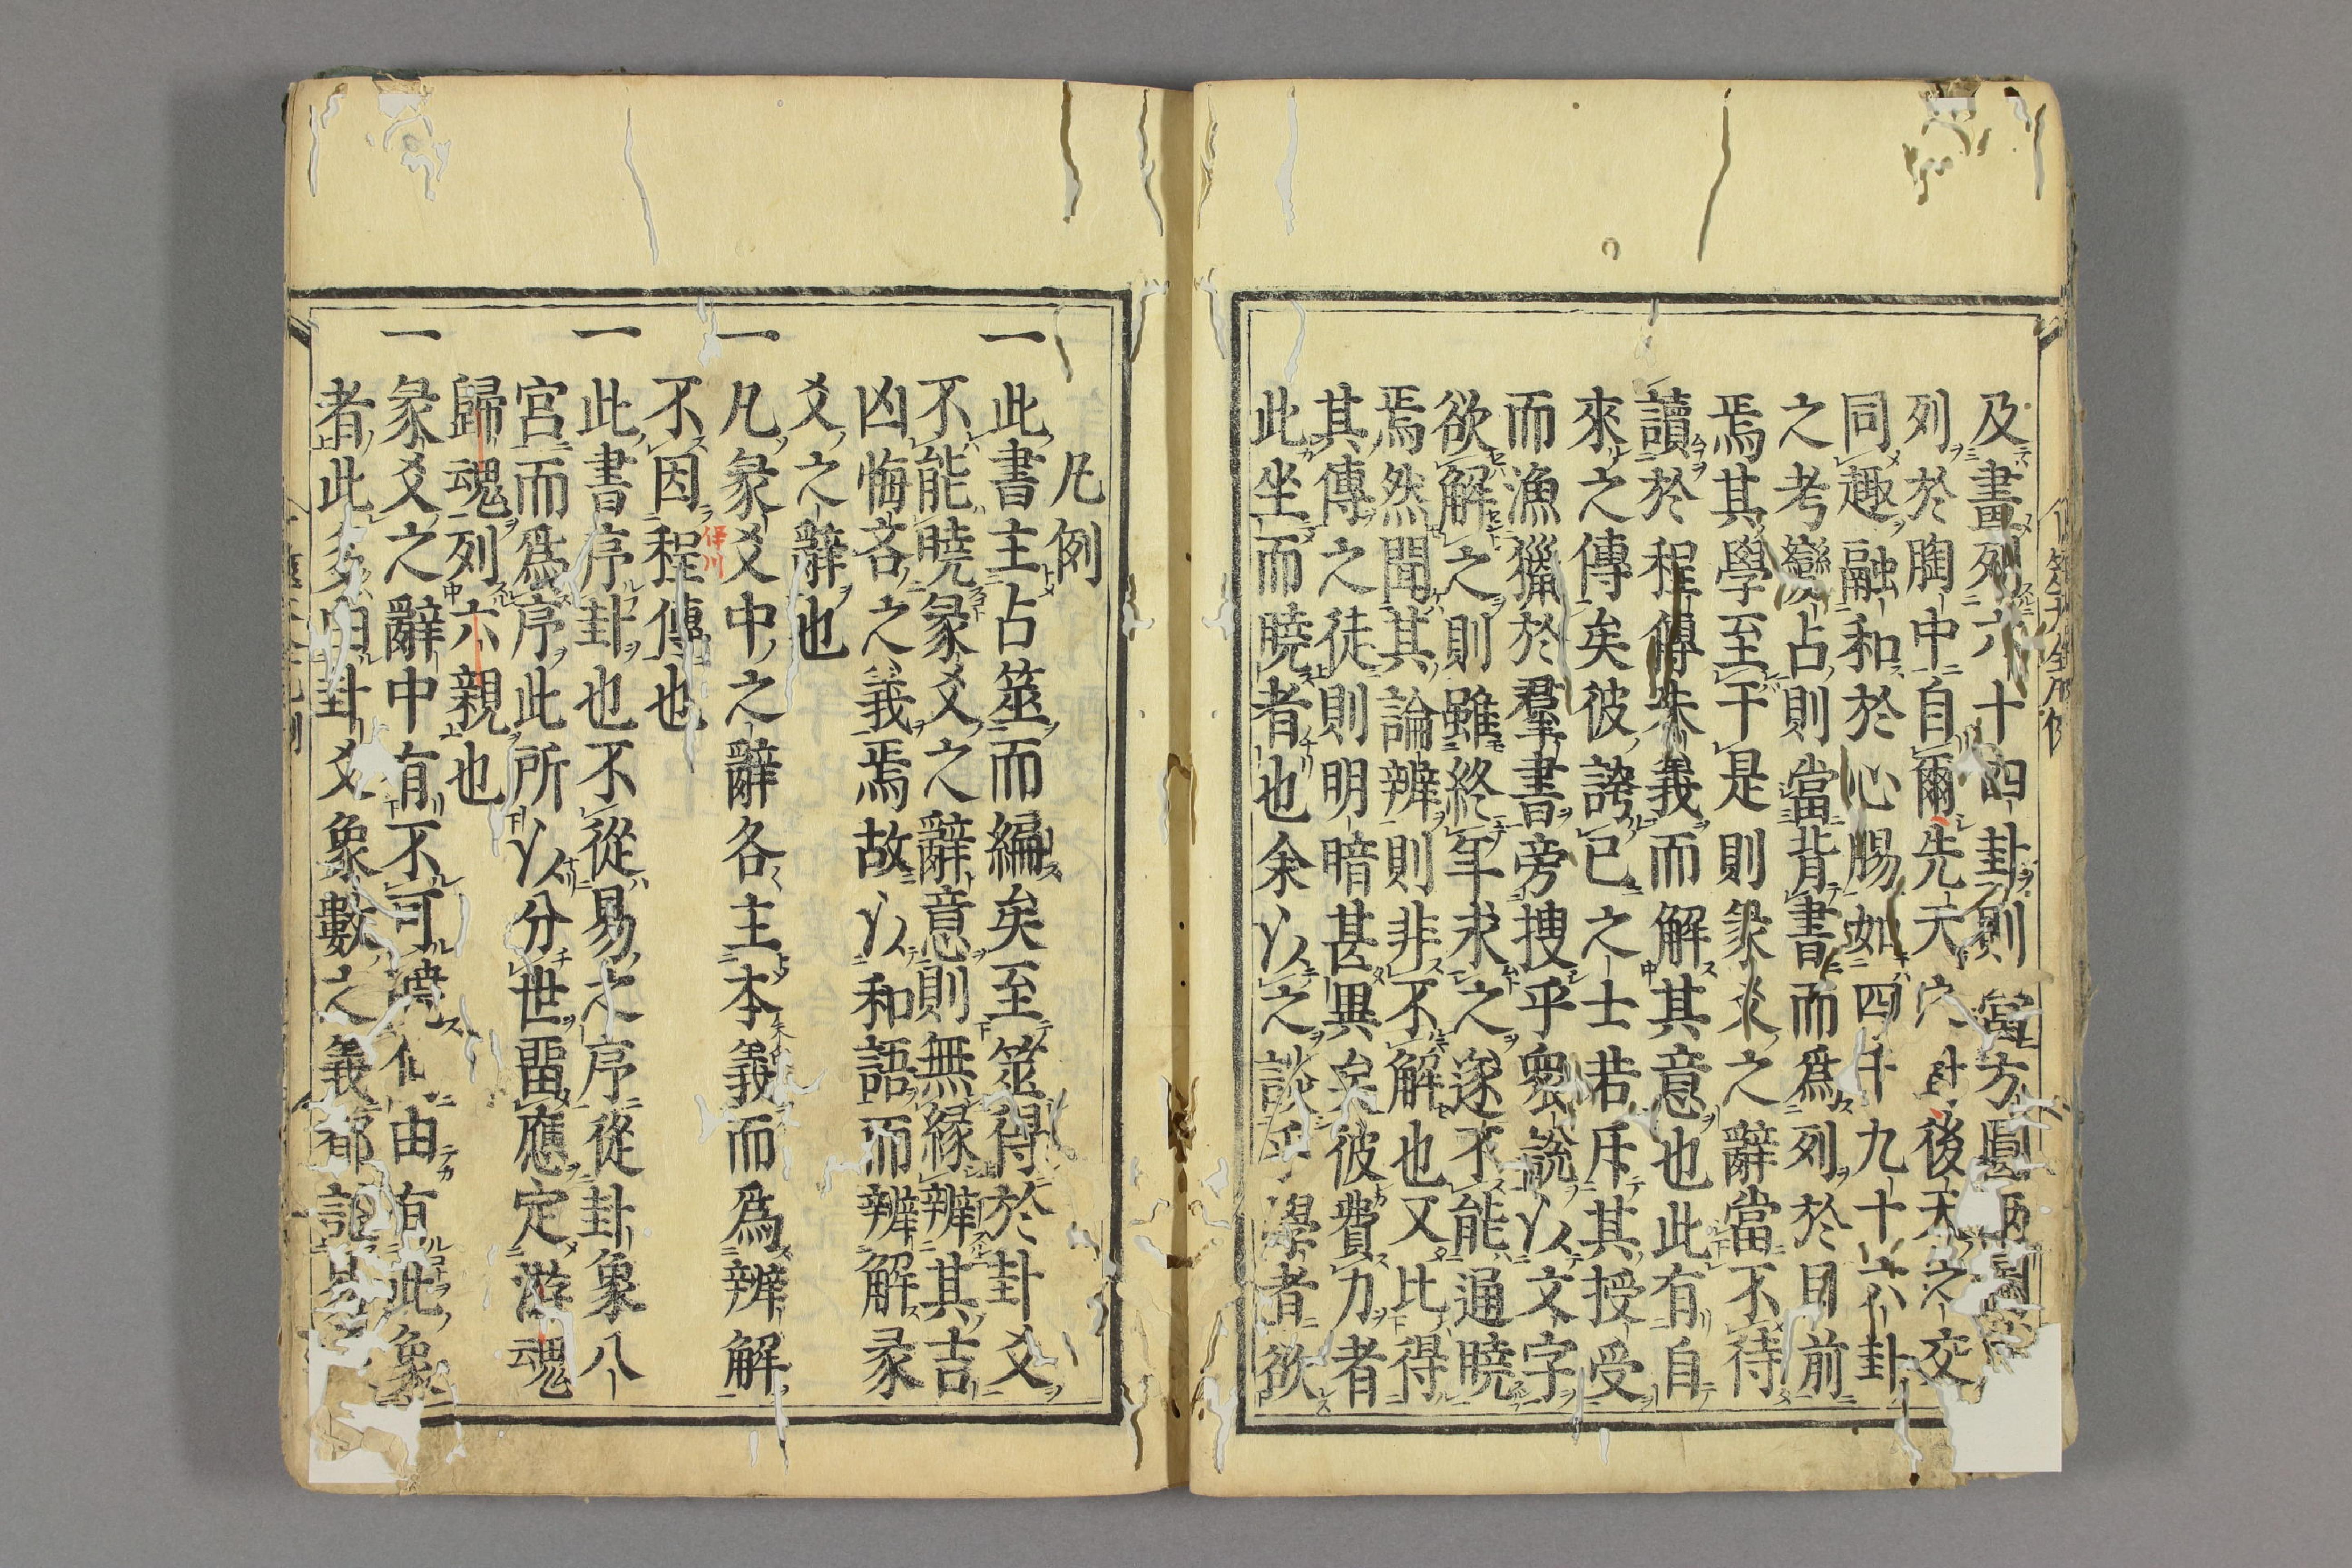 及畫列六十四卦則當方圓兩圖
列於胸中自爾先天六卦後天之交
同趣融和於心腸如四千九十六卦
之考變占則當背書而爲列於目前
焉其學至于是則彖爻之辭當不待
讀於程傳朱義而解其意也此有自
來之傳矣彼誇已之士若斥其授受
而漁獵於羣書旁搜乎衆說以文字
欲解之則雖終年求之遂不能通曉
焉然聞其論辨則非不解也又比得
其傳之徒則明暗甚異矣彼費力者
此坐而曉者也余以之談乎學者欲
凡例
一此書主占筮而編矣至筮得於卦爻
不能曉彖爻之辭意則無緣辨其吉
凶悔吝之義焉故以和語而辨解彖
爻之辭也
一凡彖爻中之辭各主本義而爲辨解
不因程傳也
伊川
一此書序卦也不從易之序從卦象八
宮而爲序此所以分世畱應定游魂
歸魂列六親也
一彖爻之辭中有不可曉何由有此象
者此多由卦爻象數之義都